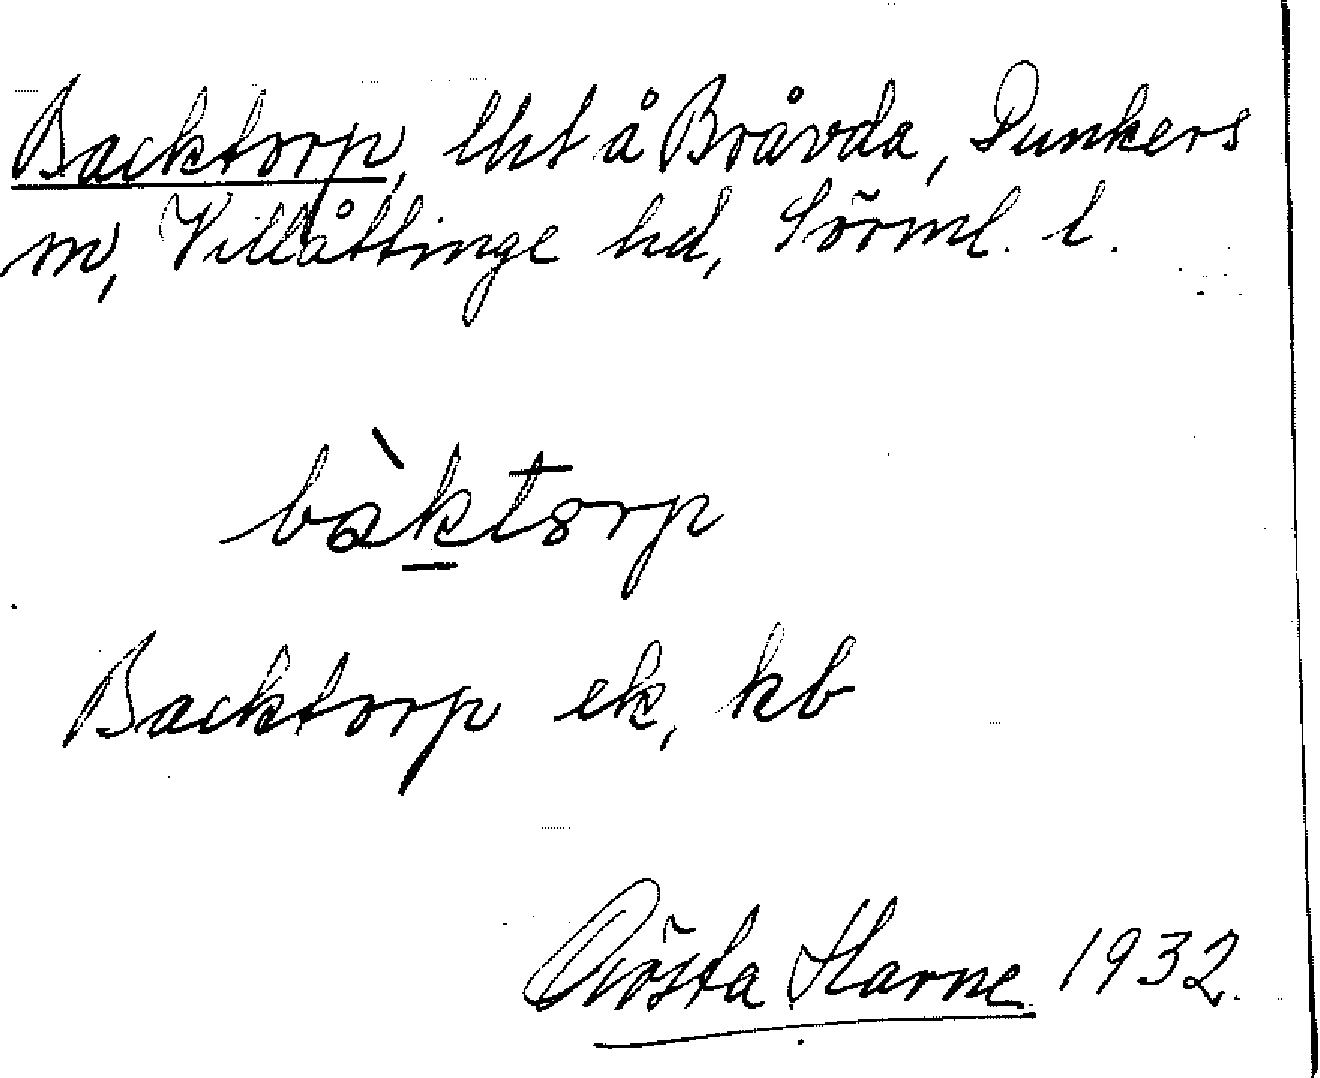 Backtorp, lht å Bråvda, Dunkers
sn, Villåttinge hd, Sörml. l.
bàktorp
Backtorp ek, kb
Gösta Harne 1932.